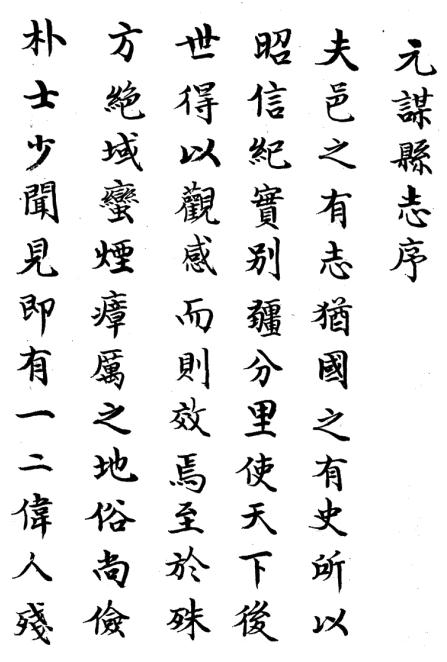 元謀縣志序
夫邑之有志猶國之有史所以
昭信紀實別疆分里使天下後
世得以觀感而則效焉至於殊
方絕域蠻煙瘴厲之地俗尚儉
朴士少聞見即有一二偉人殘